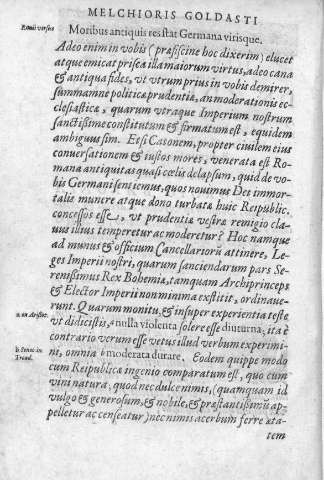 MELCHIORIS GOLDASTI
Ennii versus
Moribus antiquis res stat Germana virisque.
Adeo enim in vobis (præfiscine hoc dixerim) elucet
atque emicat prisca illa maiorum virtus, adeo cana
& antiqua fides, vt vtrum prius in vobis demirer,
summamne politicæ prudentiæ, an moderationis ec-
clesiasticæ, quarum vtraque Imperium nostrum
sanctissime constitutum & firmatum est, equidem
ambiguus sim. Et si Casonem, propter civilem eius
conversationem & iustos mores, venerata est Ro-
mana antiquitas quasi cœlis delapsum, quid de vo-
bis Germani sentiemus, quos novimus Dei immor-
talis munere atque dono turbatæ huic Reipublic.
concessos esse, vt prudentiæ vestræ remigio cla-
vus illius temperetur ac moderetur? Hoc namque
ad munus & officium Cancellariorũ attinere, Le-
ges Imperii nostri, quarum sanciendarum pars Se-
renissimus Rex Bohemiæ, tamquam Archiprinceps
& Elector Imperii non minima exstitit, ordinave-
runt. Quarum monitu, & insuper experientia teste
a. in Aristot.
vt didicistis, a nulla violenta solere esse diuturna; ita è
contrario verum esse vetus illud verbum experimi-
b. Senec. in
Troad.
ni, omnia b moderata durare. Eodem quippe modo
cum Reipublicæ ingenio comparatum est, quo cum
vini natura; quod nec dulce nimis, (quamquam id
vulgo & generosum, & nobile, & præstantissimũ ap-
pelletur ac censeatur) nec nimis acerbum ferre æta-
tem